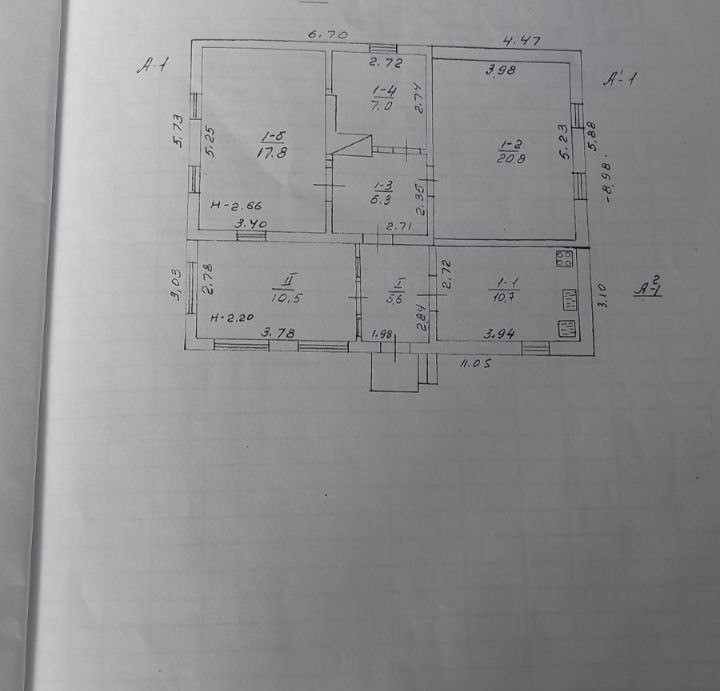 6.70
4.47
А-1
2.72
3.98
А'-1
1-4
7.0
2.74
5.73
5.25
1-5
17.8
1-2
20.8
5.23
5.88
-8.98-
1-3
6.3
2.35
Н-2.66
3.40
2.71
3.03
2.78
II
10.5
I
5.6
2.72
1-1
10.7
3.10
А²-1
Н-2.20
3.78
1.98
2.84
3.94
11.05